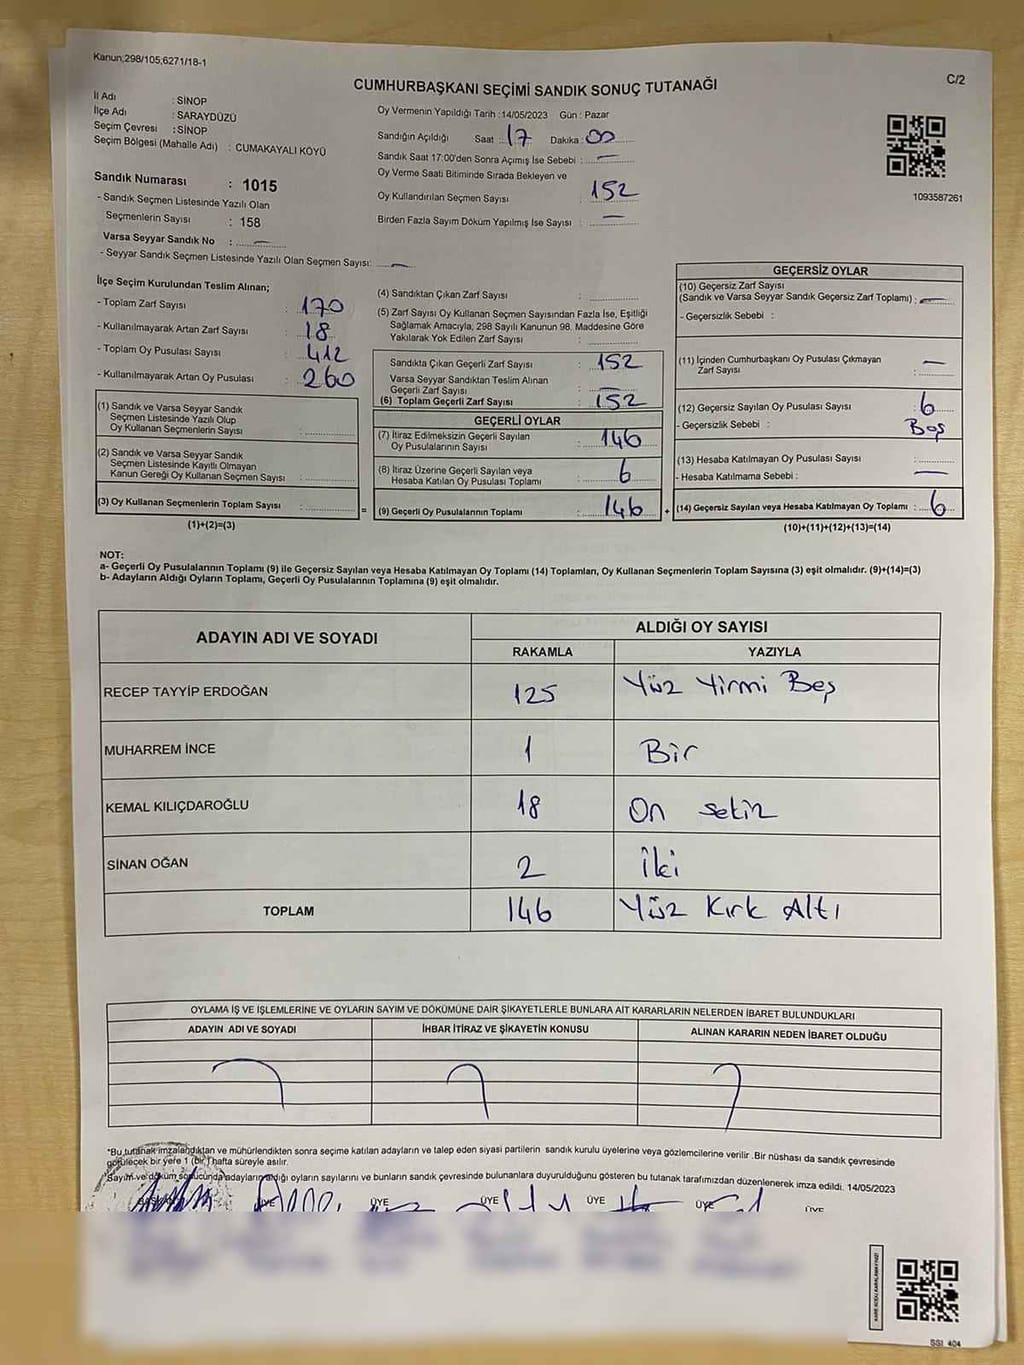 Kanun;298/105;6271/18-1
C/2
CUMHURBAŞKANI SEÇİMİ SANDIK SONUÇ TUTANAĞI
İl Adı : SİNOP
İlçe Adı : SARAYDÜZÜ
Seçim Çevresi : SİNOP
Seçim Bölgesi (Mahalle Adı) : CUMAKAYALI KÖYÜ
Oy Vermenin Yapıldığı Tarih :14/05/2023 Gün : Pazar
Sandığın Açıldığı Saat : 17 Dakika : 00
Sandık Saat 17:00'den Sonra Açımış İse Sebebi : —
Oy Verme Saati Bitiminde Sırada Bekleyen ve
Oy Kullandırılan Seçmen Sayısı : 152
Birden Fazla Sayım Döküm Yapılmış İse Sayısı : —
1093587261
Sandık Numarası : 1015
- Sandık Seçmen Listesinde Yazılı Olan
Seçmenlerin Sayısı : 158
Varsa Seyyar Sandık No : —
- Seyyar Sandık Seçmen Listesinde Yazılı Olan Seçmen Sayısı: —
İlçe Seçim Kurulundan Teslim Alınan;
- Toplam Zarf Sayısı : 170
- Kullanılmayarak Artan Zarf Sayısı : 18
- Toplam Oy Pusulası Sayısı : 412
- Kullanılmayarak Artan Oy Pusulası : 260
(1) Sandık ve Varsa Seyyar Sandık
Seçmen Listesinde Yazılı Olup
Oy Kullanan Seçmenlerin Sayısı :
(2) Sandık ve Varsa Seyyar Sandık
Seçmen Listesinde Kayıtlı Olmayan
Kanun Gereği Oy Kullanan Seçmen Sayısı :
(3) Oy Kullanan Seçmenlerin Toplam Sayısı :
(1)+(2)=(3)
(4) Sandıktan Çıkan Zarf Sayısı :
(5) Zarf Sayısı Oy Kullanan Seçmen Sayısından Fazla İse, Eşitliği
Sağlamak Amacıyla, 298 Sayılı Kanunun 98. Maddesine Göre
Yakılarak Yok Edilen Zarf Sayısı :
Sandıkta Çıkan Geçerli Zarf Sayısı : 152
Varsa Seyyar Sandıktan Teslim Alınan
Geçerli Zarf Sayısı : —
(6) Toplam Geçerli Zarf Sayısı : 152
GEÇERLİ OYLAR
(7) İtiraz Edilmeksizin Geçerli Sayılan
Oy Pusulalarının Sayısı : 146
(8) İtiraz Üzerine Geçerli Sayılan veya
Hesaba Katılan Oy Pusulası Toplamı : 6
= (9) Geçerli Oy Pusulalarının Toplamı : 146 +
GEÇERSİZ OYLAR
(10) Geçersiz Zarf Sayısı
(Sandık ve Varsa Seyyar Sandık Geçersiz Zarf Toplamı) : —
- Geçersizlik Sebebi :
(11) İçinden Cumhurbaşkanı Oy Pusulası Çıkmayan
Zarf Sayısı : —
(12) Geçersiz Sayılan Oy Pusulası Sayısı : 6
- Geçersizlik Sebebi : Boş
(13) Hesaba Katılmayan Oy Pusulası Sayısı :
- Hesaba Katılmama Sebebi : —
(14) Geçersiz Sayılan veya Hesaba Katılmayan Oy Toplamı : 6
(10)+(11)+(12)+(13)=(14)
NOT:
a- Geçerli Oy Pusulalarının Toplamı (9) ile Geçersiz Sayılan veya Hesaba Katılmayan Oy Toplamı (14) Toplamları, Oy Kullanan Seçmenlerin Toplam Sayısına (3) eşit olmalıdır. (9)+(14)=(3)
b- Adayların Aldığı Oyların Toplamı, Geçerli Oy Pusulalarının Toplamına (9) eşit olmalıdır.
ADAYIN ADI VE SOYADI ALDIĞI OY SAYISI
RAKAMLA YAZIYLA
RECEP TAYYİP ERDOĞAN 125 Yüz Yirmi Beş
MUHARREM İNCE 1 Bir
KEMAL KILIÇDAROĞLU 18 On sekiz
SİNAN OĞAN 2 İki
TOPLAM 146 Yüz Kırk Altı
OYLAMA İŞ VE İŞLEMLERİNE VE OYLARIN SAYIM VE DÖKÜMÜNE DAİR ŞİKAYETLERLE BUNLARA AİT KARARLARIN NELERDEN İBARET BULUNDUKLARI
ADAYIN ADI VE SOYADI İHBAR İTİRAZ VE ŞİKAYETİN KONUSU ALINAN KARARIN NEDEN İBARET OLDUĞU
*Bu tutanak imzalandıktan ve mühürlendikten sonra seçime katılan adayların ve talep eden siyasi partilerin sandık kurulu üyelerine veya gözlemcilerine verilir .Bir nüshası da sandık çevresinde
görülecek bir yere 1 (bir) hafta süreyle asılır.
Sayım ve döküm sonucunda adayların aldığı oyların sayılarını ve bunların sandık çevresinde bulunanlara duyurulduğunu gösteren bu tutanak tarafımızdan düzenlenerek imza edildi. 14/05/2023
BAŞKAN ÜYE ÜYE ÜYE ÜYE ÜYE ÜYE
SSI 404